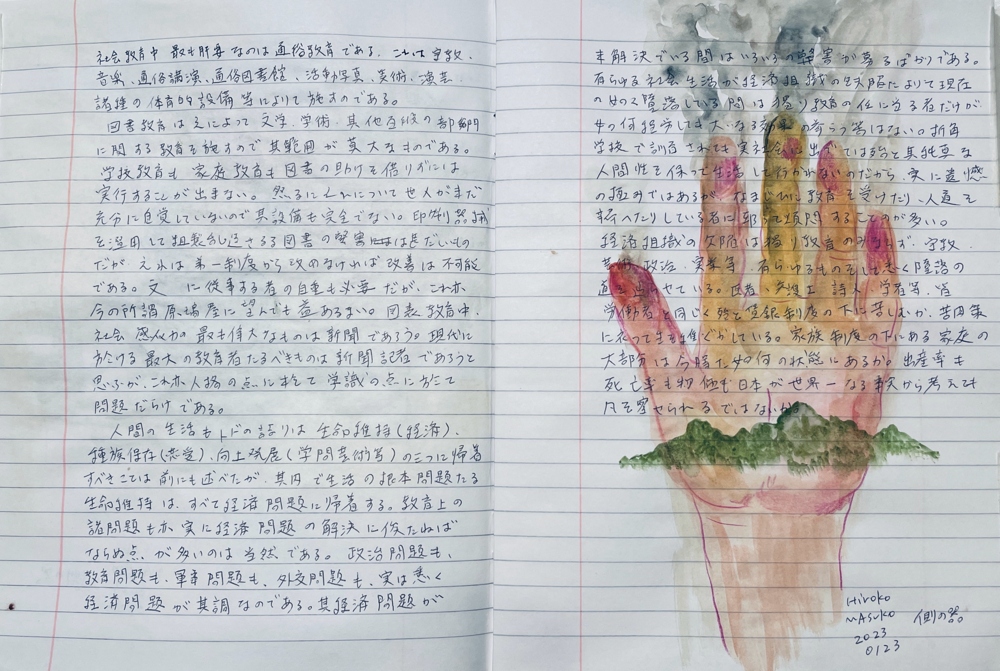 社会教育中 最も肝要なのは通俗教育である。これは宗教、
音楽、通俗講演、通俗図書館、活動写真、美術、演芸、
諸種の体育的設備等によりて施すのである。
図書教育は之によって文学、学術、其他百般の部門
に関する教育を施すので其範囲が莫大なものである。
学校教育も家庭教育も図書の助けを借りずには
実行することが出来ない。然るにそれについて世人がまだ
充分に自覚していないので其設備も完全でない。印刷器械
を活用して粗製乱造さるる図書の弊害は甚だしいもの
だが、之れは第一制度から改めなければ改善は不可能
である。文 に従事する者の自重も必要だが、これ亦
今の所謂原稿 に望んでも益あるまい。図書教育中、
社会感化力の最も偉大なものは新聞であろう。現代に
於ける最大の教育者たるべきものは新聞記者であろうと
思ふが、これ亦人物の点に於て学識の点に於て
問題だらけである。
人間の生活もトドの詰りは生命維持(経済)、
種族保存(恋愛)、向上発展(学問芸術等)の三つに帰着
すべきことは前にも述べたが、其内で生活の根本問題たる
生命維持は、すべて経済問題に帰着する。教育上の
諸問題も亦実に経済問題の解決に俟たねば
ならぬ点が多いのは当然である。政治問題も、
教育問題も、軍事問題も、外交問題も、実は悉く
経済問題が其調なのである。其経済問題が
未解決でいる間はいろいろの弊害が募るばかりである。
有らゆる社会生活が経済組織の欠陥によりて現在
の如く堕落している間は独り教育の任に当る者だけが
如何程努しても大いなる効果の有らう筈はない。折角
学校で訓育されても実社会に出ては ら其純真な
人間性を保って生活して行かれないのだから、実に遺憾
の極みではあるが、なまじひに教育を受けたり、人道を
へたりしている者に却って煩悶することが多い。
経済組織の欠陥は独り教育のみならず、宗教、
芸術、政治、実業等、有らゆるものをして悉く堕落の
道を辿らせている。医者、弁護士、詩人、学者等、皆
労働者と同じく殆ど賃銀制度の下に苦しむか、苦肉策
に依って生を維 している。家族制度の下にある家庭の
大部分は今 如何の状態にあるか。出産率も
死亡率も物価も日本が世界一なる事実から考えても
凡そ察せられるではないか。
Hiroko
MASUKO
2023
0123
側の 。